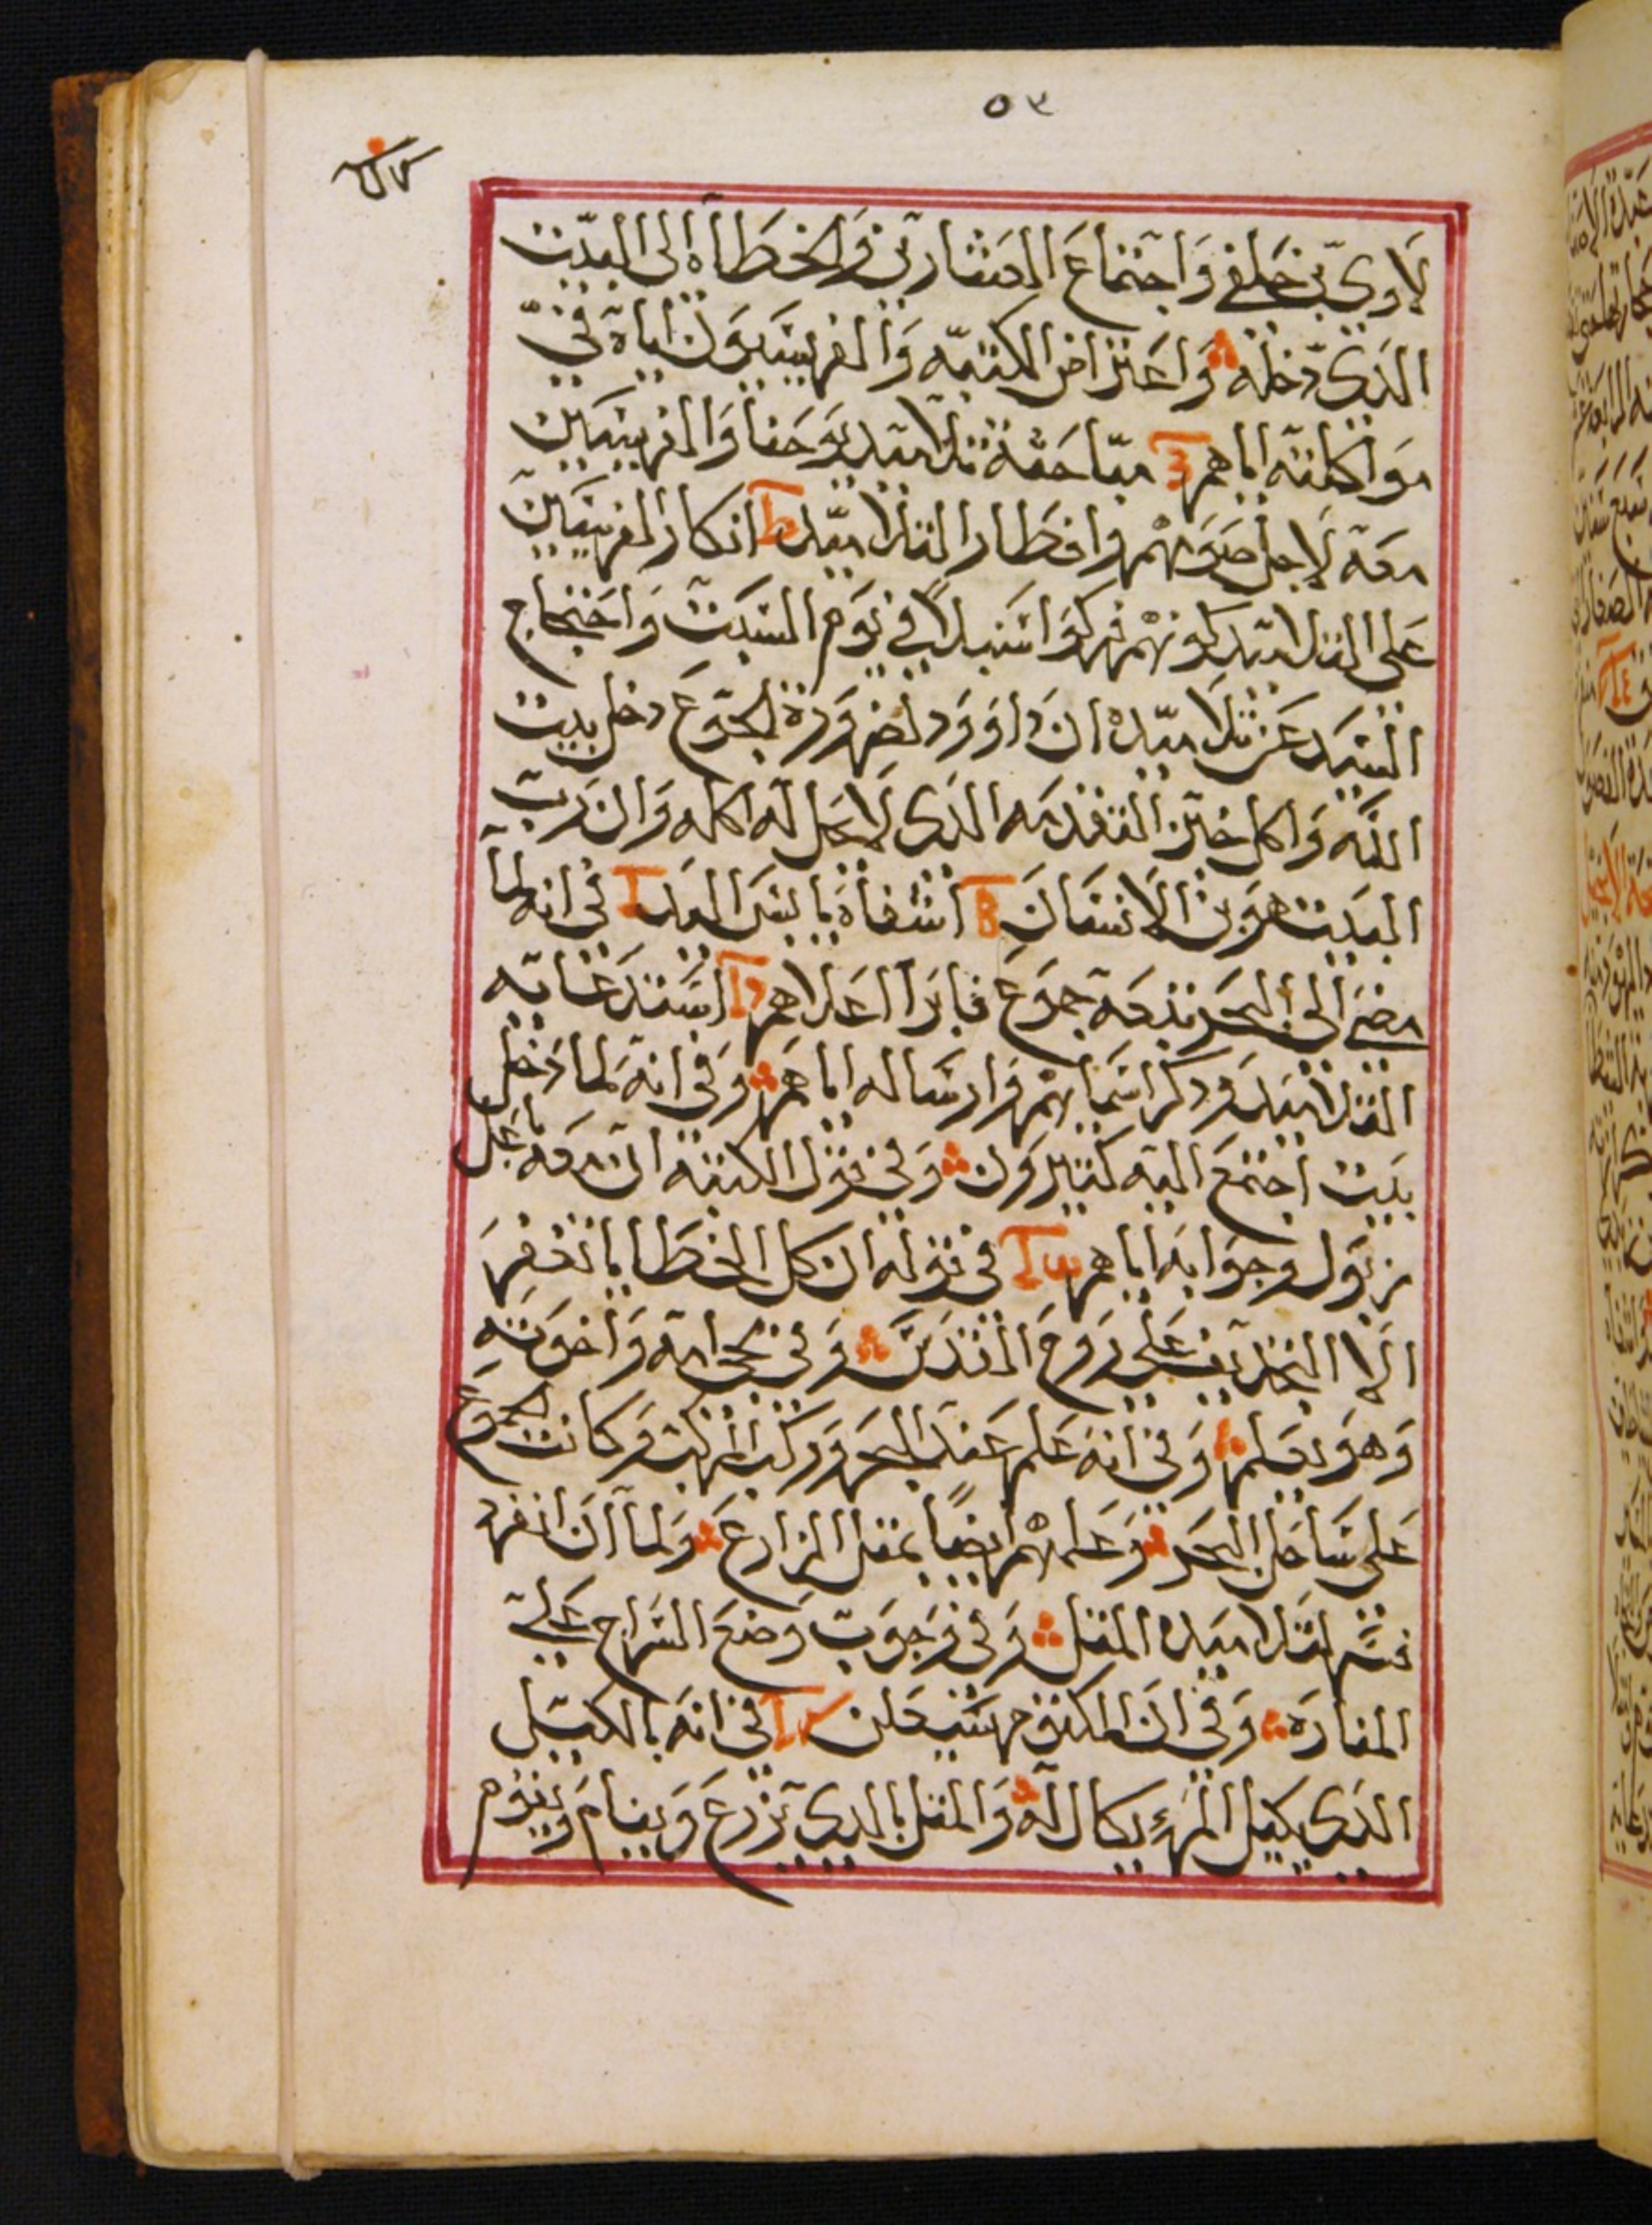 ٥٣
لاوي بن حلفي واجتماع العشارين والخطاه الى البيت
الذي دخله واعتراض الكتبه والفريسيون اياه في
مواكلته اياهم مباحثة تلاميد يوحنا والفريسيين
معه لاجل صومهم وافطار التلاميد انكار الفريسيين
على التلاميد كونهم فركوا سنبلا في يوم السبت واحتجاج
السيد عن تلاميده ان داوود لضرورة الجوع دخل بيت
الله واكل خبز التقدمه الذي لا يحل له اكله وان رب
السبت هو بن الانسان اشفاه يابس اليد في انه لما
مضى الى البحر تبعه جموع فابرا اعلاهم استدعايه
التلاميد ودكر اسمايهم وارساله اياهم وفي انه لما دخل
بيت اجتمع اليه كثيرون وفي قول الكتبه ان معه باعل
زبول وجوابه اياهم في قوله ان كل الخطايا تغفر
الا التجديف على روح القدس وفي مجي امه واخوته
وهو يعلم وفي انه علم عند البحر وركب المركب وكانت الجموع
على ساحل البحر وعلمهم ايضا بمثل الزارع ولما ان انفرد
فسر لتلاميده المثل وفي وجوب وضع السراج على
المناره وفي ان المكتوم سيعلن في انه بالكيل
الذي يكيل المرء يكال له والمثل بالدي يزرع وينام ويقوم